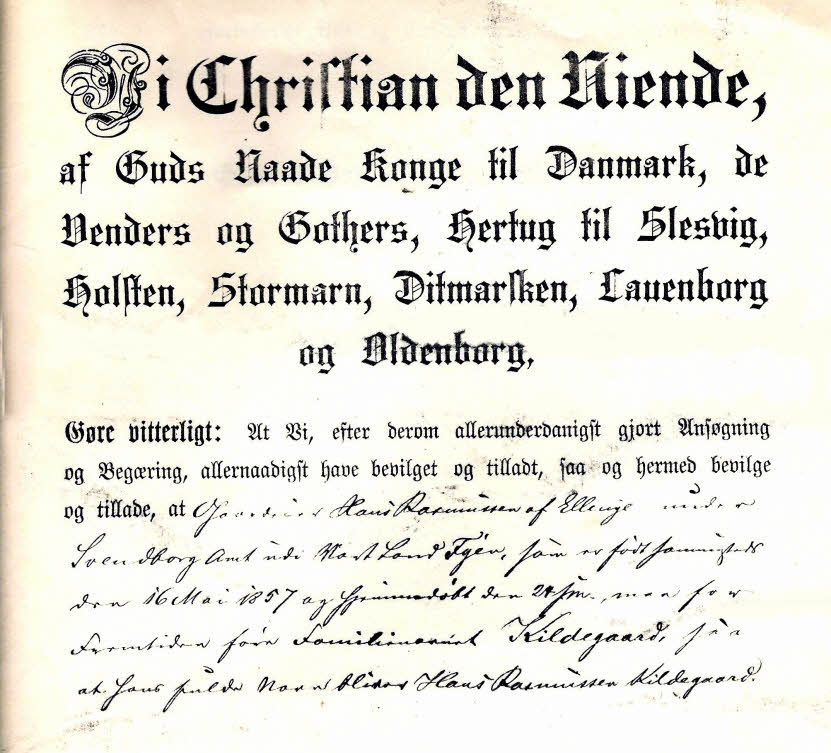 Vi Christian den Niende,
af Guds Naade Konge til Danmark, de
Venders og Gothers, Hertug til Slesvig,
Holsten, Stormarn, Ditmarsken, Lauenborg
og Oldenborg,
Gøre vitterligt: At Vi, efter derom allerunderdanigst gjort Ansøgning
og Begæring, allernaadigst have bevilget og tilladt, saa og hermed bevilge
og tillade, at Gaardejer Hans Rasmussen af Ellinge under
Svendborg Amt udi Vort Land Fyen, som er født sammesteds
den 16 Mai 1857 og hjemmedøbt den 24 s.m., maa for
Fremtiden føre Familienavnet Kildegaard, saa
at hans fulde Navn bliver Hans Rasmussen Kildegaard.